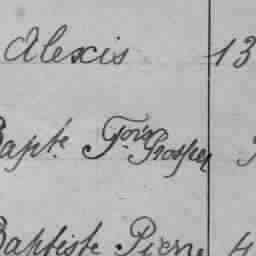 Alexis 13
Bapt.e Fois Prosper
Baptiste Pierre 4